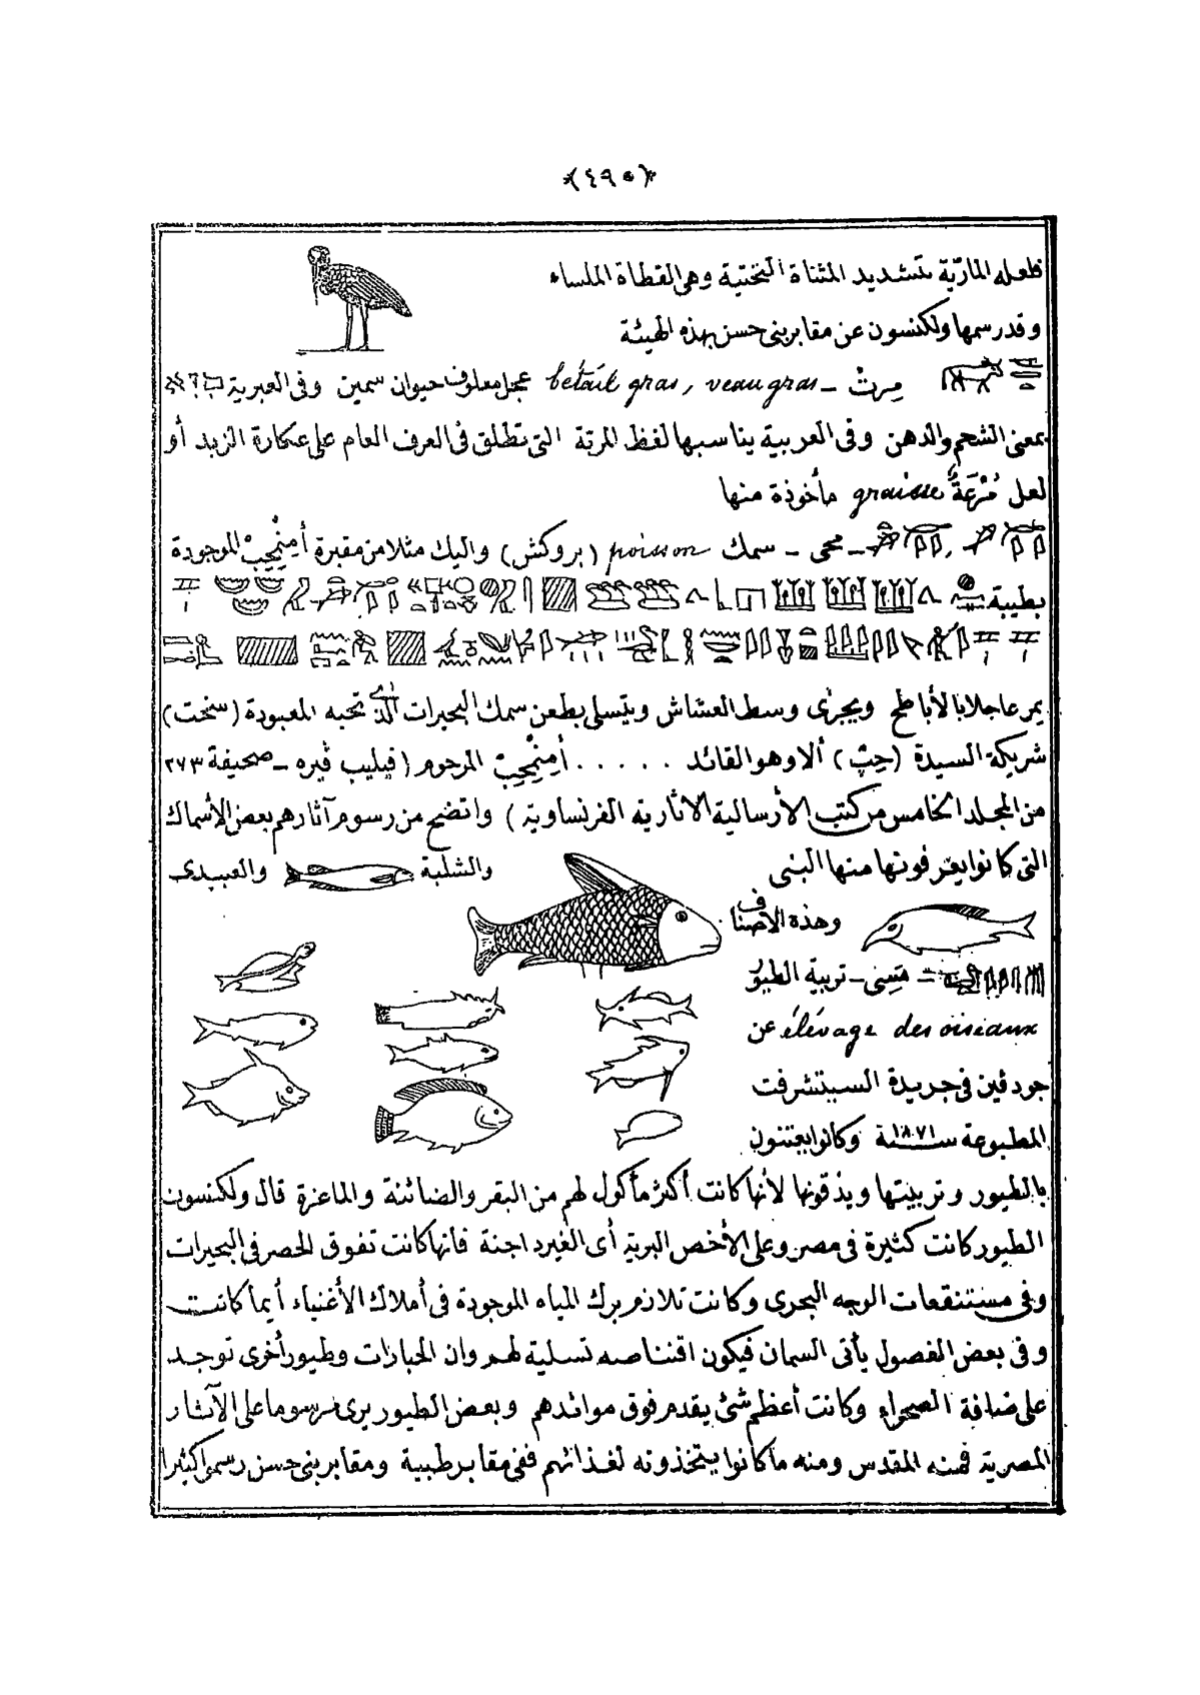 ﴿٤٩٠﴾
فلعله المارّية بتشديد المثناة التحتية وهى القطاة الملساء
وقد رسمها ولكنسون عن مقابر بنى حسن بهذه الهيئة
مِرِتْ – bétail gras, veau gras عجل معلوف حيوان سمين وفى العبرية
بمعنى الشحم والدهن وفى العربية يناسبها لفظ المرتة التى تطلق فى العرف العام على عكارة الزبد أو
لعل مُرْعَةٌ graisse مأخوذة منها
– محى – سمك poisson (بروكش) واليك مثلا من مقبرة أمِنْمِحِبْ الموجودة
بطيبة
يمر عاجلا بالأباطح ويجرى وسط العشاش ويتسلى بطعن سمك البحيرات الذى تحبه المعبودة (سخت)
شريكة السيدة (حِبْ) ألا وهو القائد ..... أمِنْمِحِبْ المرحوم (فيليب ڤيره – صحيفة ٢٧٣
من المجلد الخامس من كتب الأرسالية الاثارية الفرنساوية) واتضح من رسوم آثارهم بعض الأسماك
التى كانوا يعرفونها منها البنى والشلبة والعبيدى
وهذه الاصناف
– مَسِنى – تربية الطيور
élévage des oiseaux عن
جودڤين فى جريدة السيتشرفت
المطبوعة سنة ١٨٧١ وكانوا يعتنون
بالطيور وتربيتها ويذقونها لأنها كانت أكثر مأكول لهم من البقر والضائنة والماعزة قال ولكنسون
الطيور كانت كثيرة فى مصر وعلى الأخص البرية أى الغير داجنة فانها كانت تفوق الحصر فى البحيرات
وفى مستنقعات الوجه البحرى وكانت تلازم برك المياه الموجودة فى أملاك الأغنياء أيما كانت
وفى بعض الفصول يأتى السمان فيكون اقتناصه تسلية لهم وان الحبارات وطيور أخرى توجد
على ضافة الصحراء وكانت أعظم شئ يقدم فوق موائدهم وبعض الطيور يرى مرسوما على الآثار
المصرية فمنه المقدس ومنه ما كانوا يتخذونه لغذائهم ففى مقابر طيبة ومقابر بنى حسن رسموا كثيرا